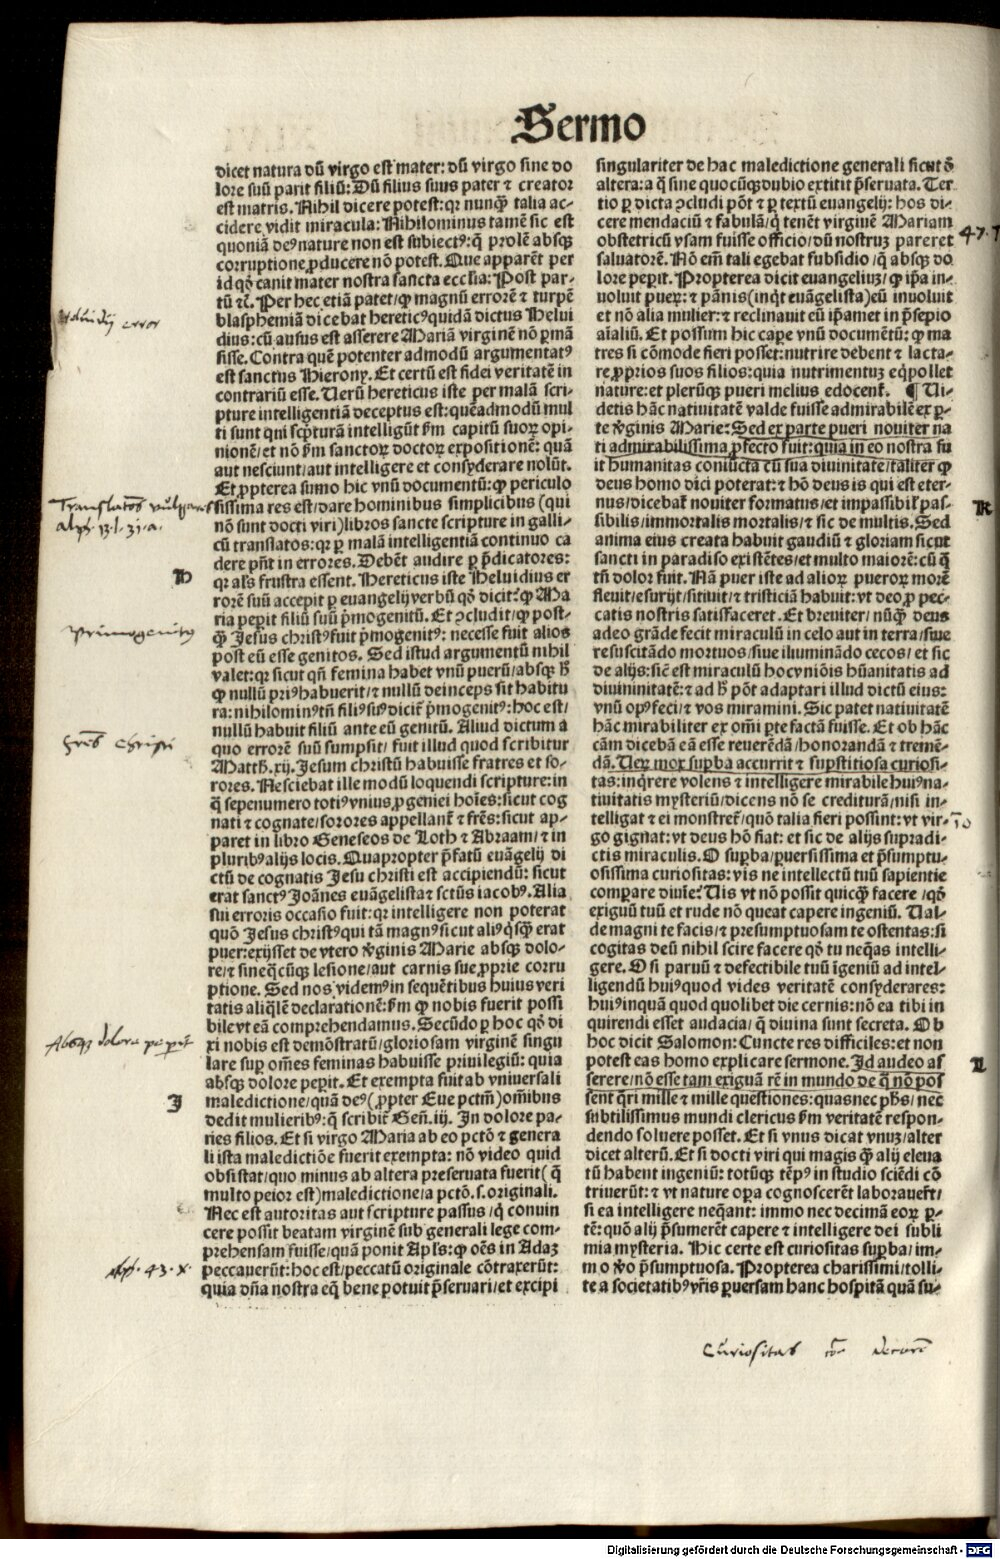 Sermo
dicet natura dū virgo est mater: dū virgo sine do
lore suū parit filiū: Dū filius suus pater ⁊ creator
est matris. Nihil dicere potest: qꝛ nunꝙ̄ talia ac-
cidere vidit miracula: Nihilominus tamē sic est
quoniā deꝰ nature non est subiectꝰ: q̄ prolē absqꝫ
corruptione ꝓducere nō potest. Que apparēt per
id qd̄ canit mater nostra sancta ecclīa: Post par-
tū ⁊c̄. Per hec etiā patet/ ꝙ magnū errorē ⁊ turpē
blasphemiā dicebat hereticꝰ quidā dictus Helui
dius: cū ausus est asserere Mariā virginē nō ꝑmā
sisse. Contra quē potenter admodū argumentatꝰ
est sanctus Hierony. Et certū est fidei veritatē in
contrariū esse. Uerū hereticus iste per malā scri-
pture intelligentiā deceptus est: quēadmodū mul
ti sunt qui scp̄turā intelligūt ẜm capitū suoꝝ opi-
nionē/ et nō ẜm sanctoꝝ doctoꝝ expositionē: quā
aut nesciunt/ aut intelligere et consyderare nolūt.
Et ꝓpterea sumo hic vnū documētū: ꝙ periculo
sissima res est/ dare hominibus simplicibus (qui
nō sunt docti viri) libros sancte scripture in galli
cū translatos: qꝛ ꝑ malā intelligentiā continuo ca
dere pn̄t in errores. Debēt audire ꝑ p̄dicatores:
qꝛ al's frustra essent. Hereticus iste Heluidius er
H
rorē suū accepit ꝑ euangelij verbū qd̄ dicit: ꝙ Ma
ria peꝑit filiū suū p̄mogenitū. Et ↄcludit/ ꝙ post-
ꝙ̄ Jesus christꝰ fuit p̄mogenitꝰ: necesse fuit alios
post eū esse genitos. Sed istud argumentū nihil
valet: qꝛ sicut qn̄ femina habet vnū puerū/ absqꝫ ħ
ꝙ nullū priꝰ habuerit/ ⁊ nullū deinceps sit habitu
ra: nihilominꝰ tn̄ filiꝰ suꝰ dicit̄ p̄mogenitꝰ: hoc est/
nullū habuit filiū ante eū genitū. Aliud dictum a
quo errorē suū sumpsit/ fuit illud quod scribitur
Matth. xij. Jesum christū habuisse fratres et so-
rores. Nesciebat ille modū loquendi scripture: in
q̄ sepenumero totiꝰ vnius ꝓgeniei hoīes: sicut cog
nati ⁊ cognate/ sorores appellant̄ ⁊ fr̄es: sicut ap-
paret in libro Geneseos de Loth ⁊ Abraam/ ⁊ in
pluribꝰ alijs locis. Quapropter p̄fatū euāgelij di
ctū de cognatis Jesu christi est accipiendū: sicut
erat sanctꝰ Joānes euāgelista ⁊ sctūs iacobꝰ. Alia
sui erroris occasio fuit: qꝛ intelligere non poterat
quō Jesus christꝰ qui tā magnꝰ sicut aliꝰ qsꝙ̄ erat
puer: exijsset de vtero v̄ginis Marie absqꝫ dolo-
re/ ⁊ sine q̄cūqꝫ lesione/ aut carnis sue ꝓprie corru
ptione. Sed nos videmꝰ in sequētibus huius veri
tatis aliq̄lē declarationē: ẜm ꝙ nobis fuerit possi
bile vt eā comprehendamus. Secūdo ꝑ hoc qd̄ di
xi nobis est demōstratū/ gloriosam virginē singu
lare suꝑ om̄es feminas habuisse priuilegiū: quia
absqꝫ dolore peꝑit. Et exempta fuit ab vniuersali
J
maledictione/ quā deꝰ (ꝓpter Eue pctm̄) om̄ibus
dedit mulieribꝰ: q̄ scribit̄ Gen̄. iij. In dolore pa-
ries filios. Et si virgo Maria ab eo pctō ⁊ genera
li ista maledictiōe fuerit exempta: nō video quid
obsistat/ quo minus ab altera preseruata fuerit (q̄
multo peior est) maledictione/ a pctō. s. originali.
Nec est autoritas aut scripture passus/ q̄ conuin
cere possit beatam virginē sub generali lege com-
prehensam fuisse/ quā ponit Apl's: ꝙ oēs in Adaꝫ
peccauerūt: hoc est/ peccatū originale cōtraxerūt:
quia dn̄a nostra eq̄ bene potuit p̄seruari/ et excipi
singulariter de hac maledictione generali sicut ō
altera: a q̄ sine quocūqꝫ dubio extitit p̄seruata. Ter
tio ꝑ dicta ↄcludi pōt ⁊ ꝑ textū euangelij: hos di-
cere mendaciū ⁊ fabulā/ q̄ tenēt virginē Mariam
obstetricū vsam fuisse officio/ dū nostruꝫ pareret
saluatorē. Nō em̄ tali egebat subsidio/ q̄ absqꝫ do
lore peꝑit. Propterea dicit euangeliuꝫ/ ꝙ ip̄a in-
uoluit pueꝝ: ⁊ pānis (inqt euāgelista) eū inuoluit
et nō alia mulier: ⁊ reclinauit eū ip̄amet in p̄sepio
aīaliū. Et possum hic caꝑe vnū documētū: ꝙ ma
tres si cōmode fieri posset: nutrire debent ⁊ lacta-
re ꝓprios suos filios: quia nutrimentuꝫ eq̄pollet
nature: et plerūqꝫ pueri melius edocent̄. ¶ Ui-
detis hāc natiuitatē valde fuisse admirabilē ex ꝑ-
te v̄ginis Marie: Sed ex parte pueri nouiter na
ti admirabilissima ꝓfecto fuit: quia in eo nostra fu
it humanitas coniūcta cū sua diuinitate/ taliter ꝙ
deus homo dici poterat: ⁊ hō deus is qui est eter-
nus/ dicebat̄ nouiter formatus/ et impassibil' pas-
K
sibilis/ immortalis mortalis/ ⁊ sic de multis. Sed
anima eius creata habuit gaudiū ⁊ gloriam sicut
sancti in paradiso existētes/ et multo maiorē: cū q̄
tn̄ dolor fuit. Nā puer iste ad alioꝝ pueroꝝ morē
fleuit/ esurijt/ sitiuit/ ⁊ tristiciā habuit: vt deo ꝓ pec-
catis nostris satisfaceret. Et breuiter/ nūꝙ̄ deus
adeo grāde fecit miraculū in celo aut in terra/ siue
resuscitādo mortuos/ siue illuminādo cecos/ et sic
de alijs: sic̄ est miraculū hoc vniōis hūanitatis ad
diuininitatē: ⁊ ad ħ pōt adaptari illud dictū eius:
vnū opꝰ feci/ ⁊ vos miramini. Sic patet natiuitatē
hāc mirabiliter ex om̄i ꝑte factā fuisse. Et ob hāc
cām dicebā eā esse reuerēdā/ honorandā ⁊ tremē-
dā. Ueꝝ mox suꝑba accurrit ⁊ suꝑstitiosa curiosi-
tas: inq̄rere volens ⁊ intelligere mirabile huiꝰ na-
tiuitatis mysteriū/ dicens nō se crediturā/ nisi in-
telligat ⁊ ei monstret̄/ quō talia fieri possint: vt vir-
go gignat: vt deus hō fiat: et sic de alijs supradi-
ctis miraculis. O suꝑba/ ꝑuersissima et p̄sumptu-
osissima curiositas: vis ne intellectū tuū sapientie
compare diuīe: Uis vt nō possit quicꝙ̄ facere/ qd̄
exiguū tuū et rude nō queat capere ingeniū. Ual-
de magni te facis/ ⁊ presumptuosam te ostentas: si
cogitas deū nihil scire facere qd̄ tu neq̄as intelli-
gere. O si paruū ⁊ defectibile tuū īgeniū ad intel-
ligendū huiꝰ quod vides veritatē consyderares:
huiꝰ inquā quod quolibet die cernis: nō ea tibi in
quirendi esset audacia/ q̄ diuina sunt secreta. Ob
hoc dicit Salomon: Cuncte res difficiles: et non
potest eas homo explicare sermone. Id audeo as
L
serere/ nō esse tam exiguā rē in mundo de q̄ nō pos
sent q̄ri mille ⁊ mille questiones: quas nec phs̄/ nec
subtilissimus mundi clericus ẜm veritatē respon-
dendo soluere posset. Et si vnus dicat vnuꝫ/ alter
dicet alterū. Et si docti viri qui magis ꝙ̄ alij eleua
tū habent ingeniū: totūqꝫ tēpꝰ in studio sciēdi cō
triuerūt: ⁊ vt nature oꝑa cognoscerēt laborauer̄t/
si ea intelligere neq̄ant: immo nec decimā eoꝝ ꝑ-
tē: quō alij p̄sumerēt capere ⁊ intelligere dei subli
mia mysteria. Hic certe est curiositas suꝑba/ im-
mo v̄o p̄sumptuosa. Propterea charissimi/ tolli-
te a societatibꝰ vr̄is ꝑuersam hanc hospitā quā su-
error
primogenitus
fr̄es christi
Absqꝫ dolore peperit
alph. 43. X.
47. T
Curiositas
Digitalisierung gefördert durch die Deutsche Forschungsgemeinschaft - DFG